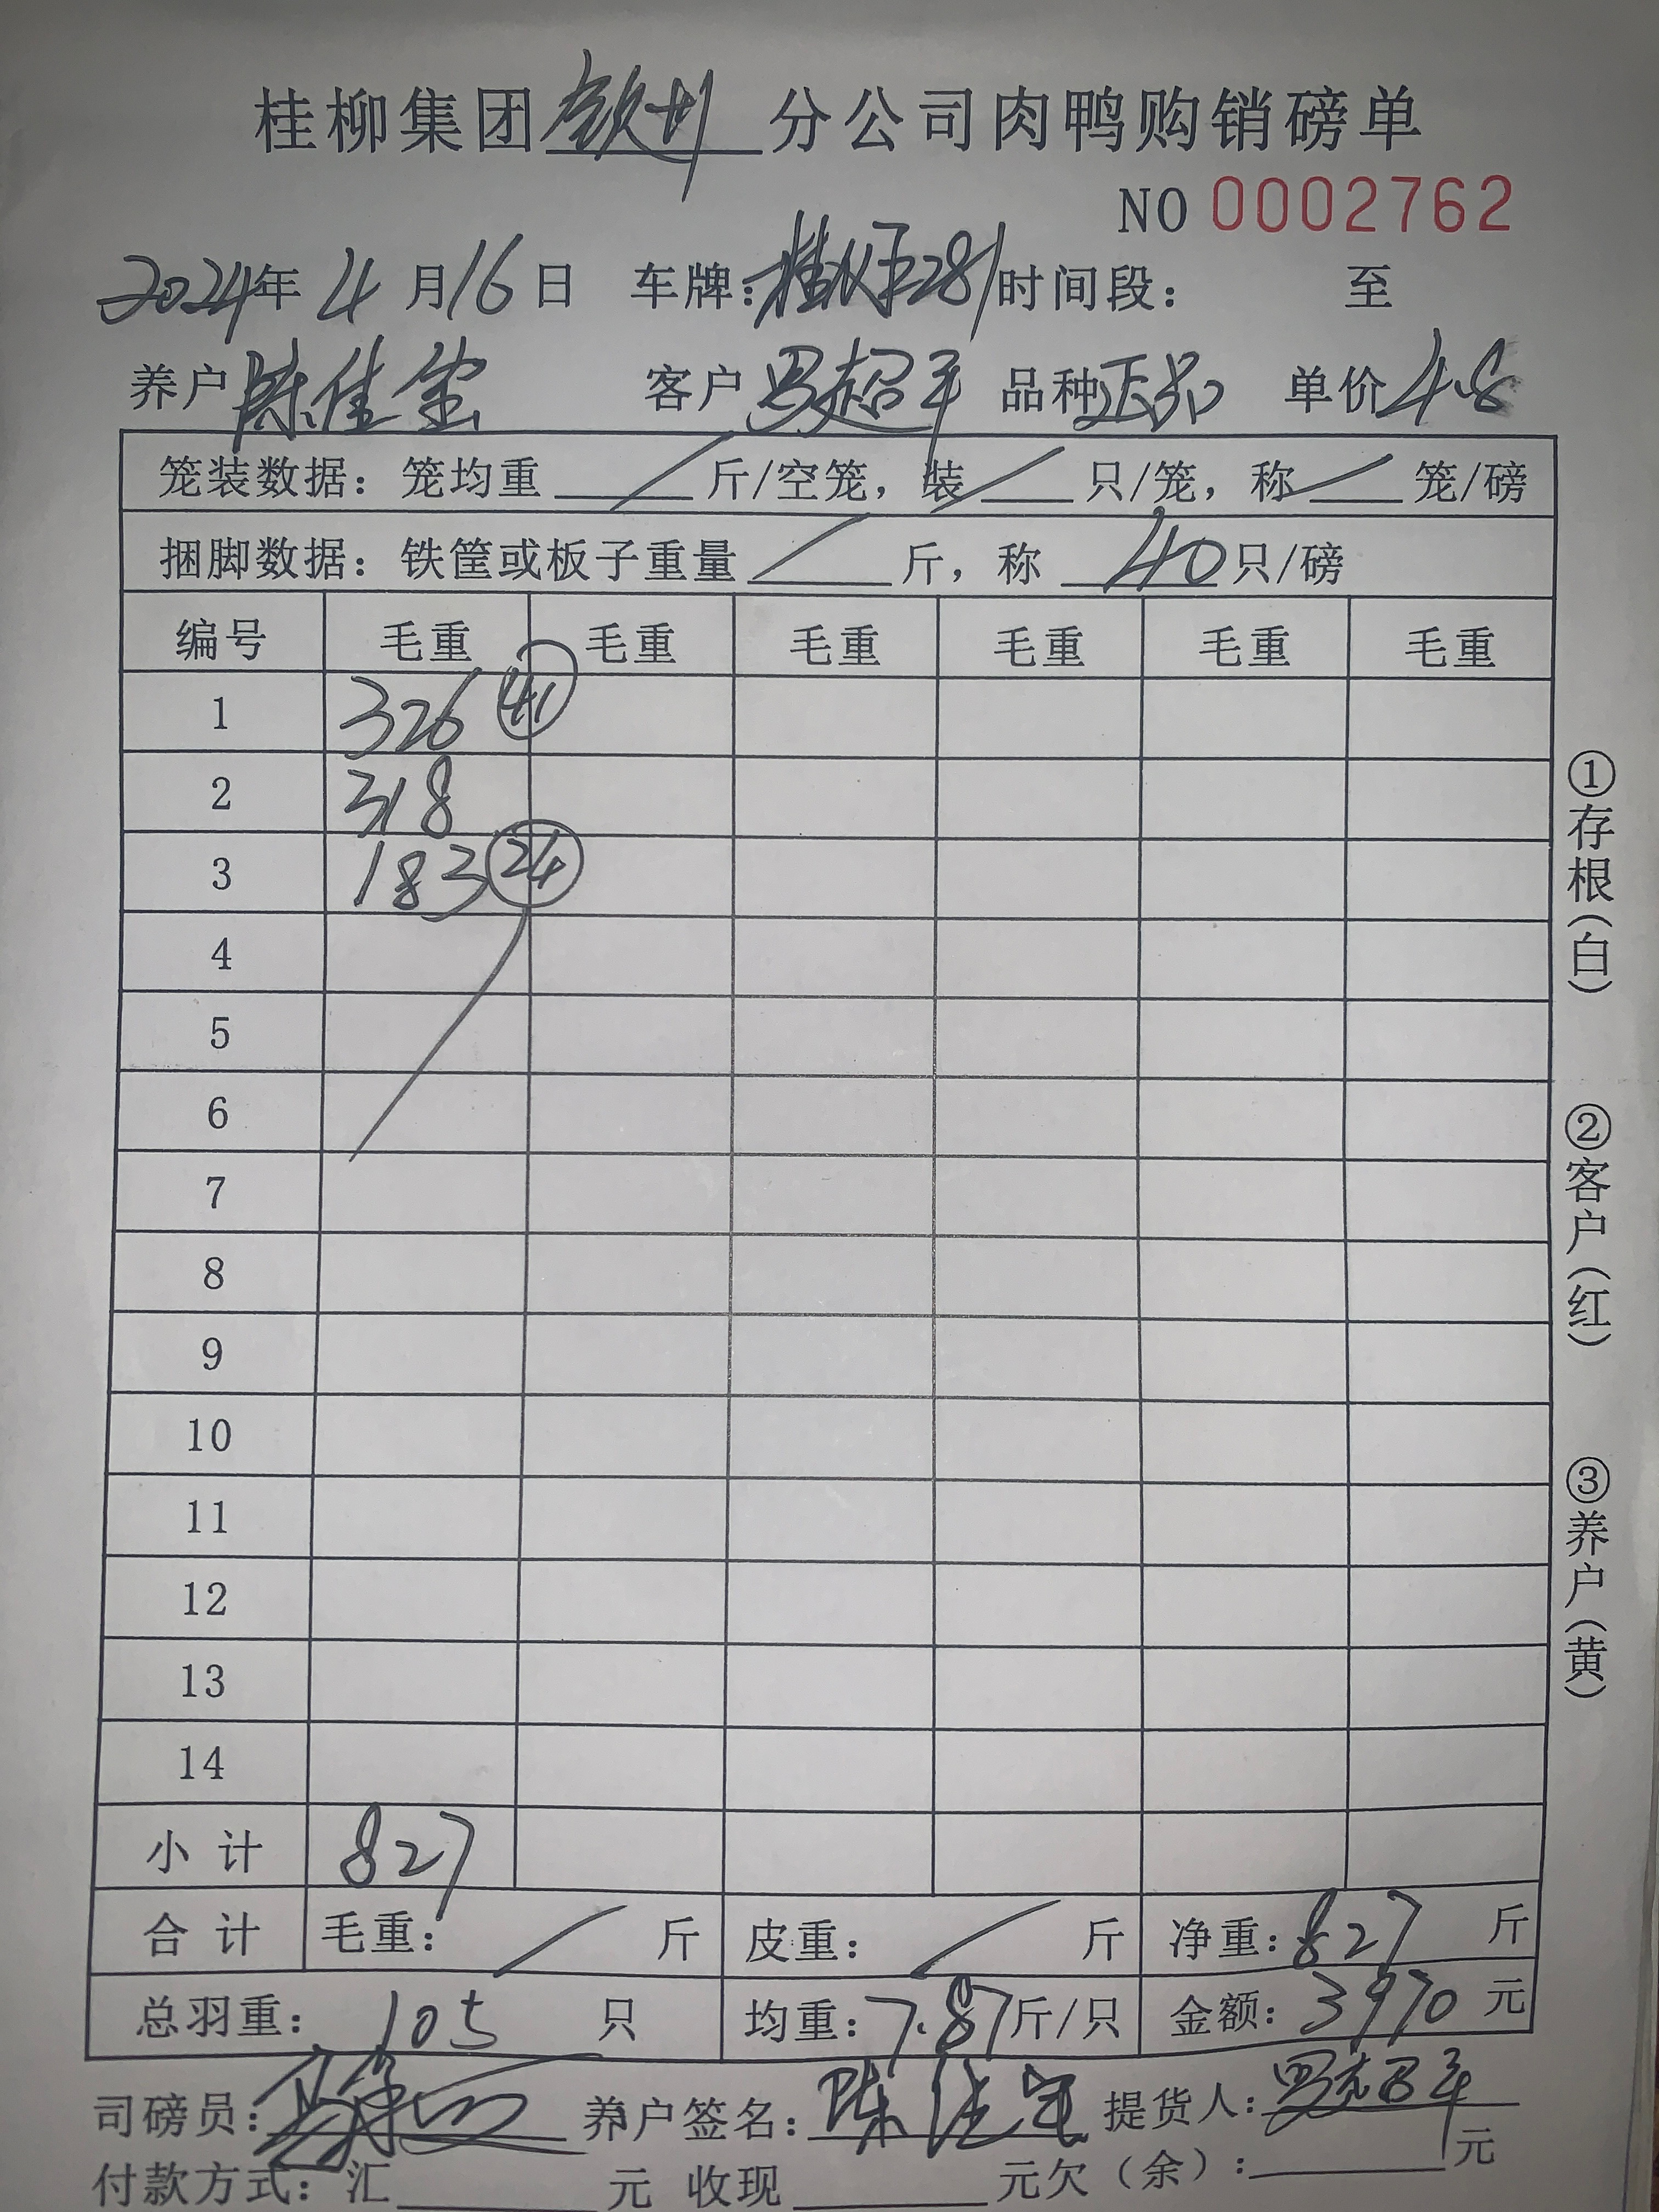 桂柳集团钦州分公司肉鸭购销磅单
NO 0002762
2024年4月16日 车牌:桂 281 时间段: 至
养户 陈佳宝 客户 罗超平 品种 正品 单价 4.8
笼装数据: 笼均重 / 斤/空笼, 装 / 只/笼, 称 / 笼/磅
捆脚数据: 铁筐或板子重量 / 斤, 称 40 只/磅
编号 毛重 毛重 毛重 毛重 毛重 毛重
1 326 41
2 318
3 183 24
4
5
6
7
8
9
10
11
12
13
14
小计 827
合计 毛重: / 斤 皮重: / 斤 净重: 827 斤
总羽重: 105 只 均重: 7.87 斤/只 金额: 3970 元
司磅员: 养户签名: 陈佳宝 提货人: 罗超平
付款方式: 汇 元 收现 元欠(余): 元
①存根(白)
②客户(红)
③养户(黄)